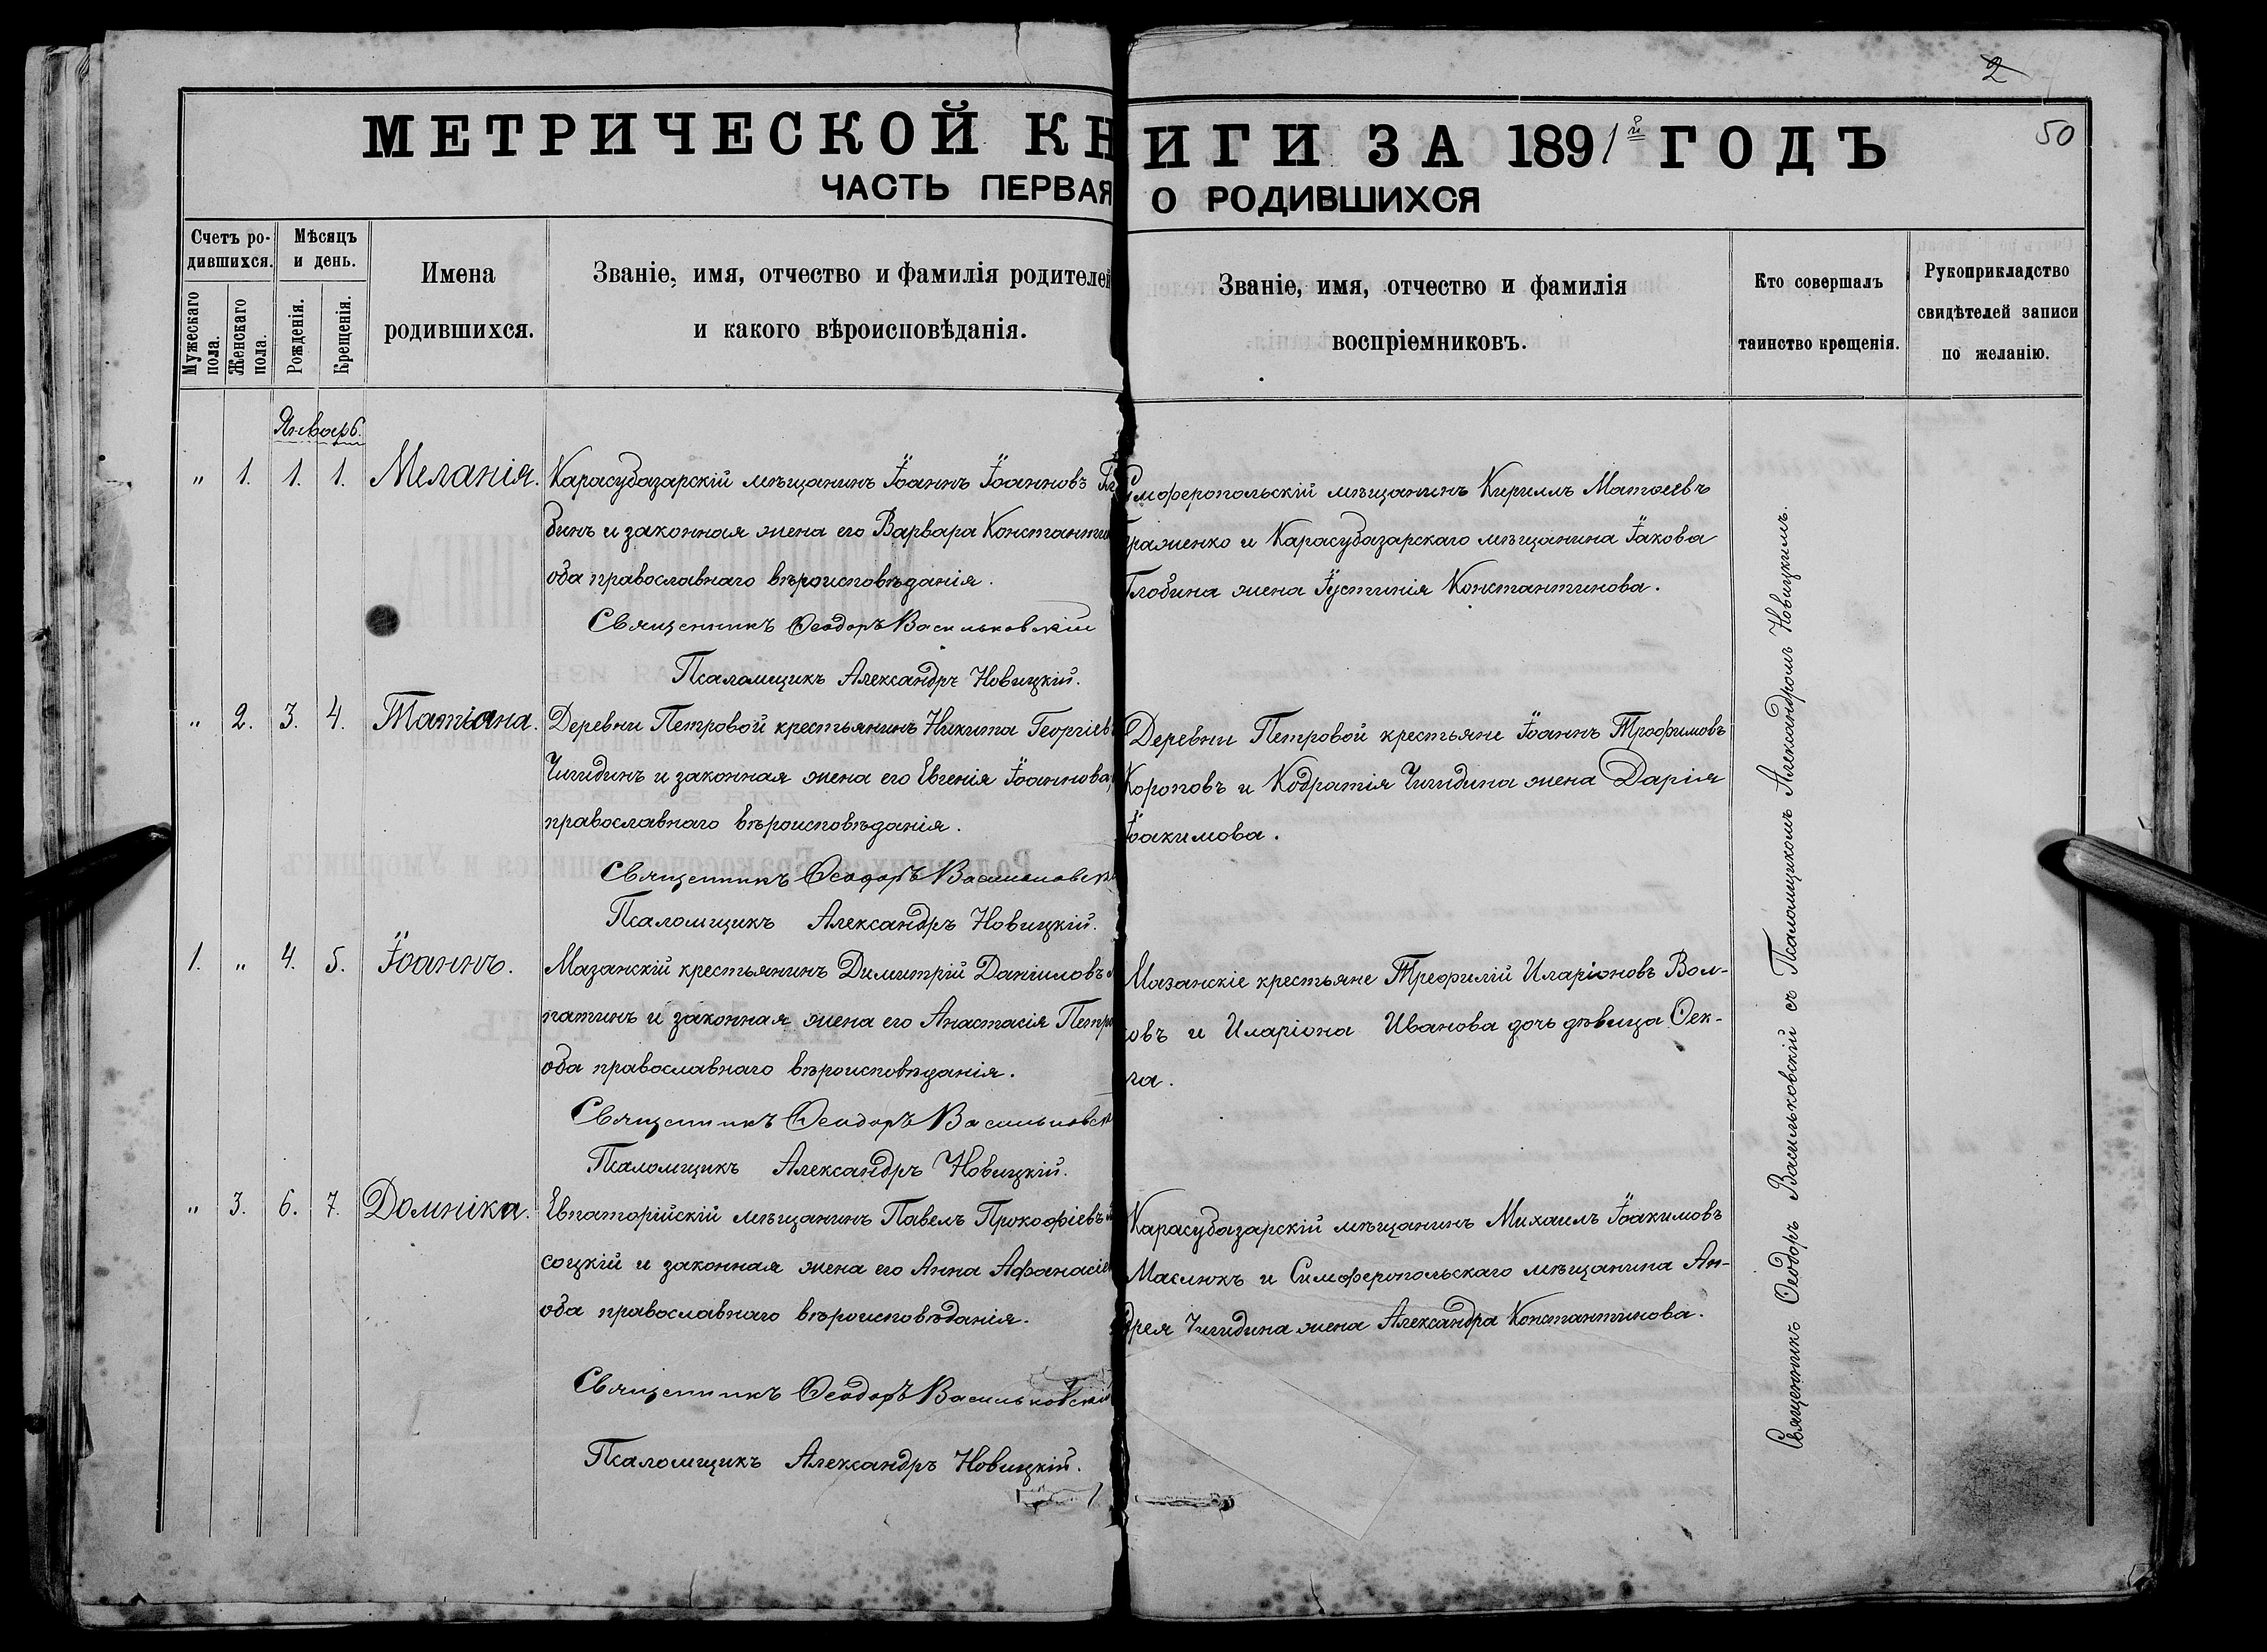 2
50
МЕТРИЧЕСКОЙ КНИГИ ЗА 1891й ГОДЪ
ЧАСТЬ ПЕРВАЯ О РОДИВШИХСЯ
Счетъ ро-
дившихся.
Мужескаго
пола.
Женскаго
пола.
Мѣсяцъ
и день.
Рожденія.
Крещенія.
Имена
родившихся.
Званіе, имя, отчество и фамилія родителей
и какого вѣроисповѣданія.
Званіе, имя, отчество и фамилія
воспріемниковъ.
Кто совершалъ
таинство крещенія.
Рукоприкладство
свидѣтелей записи
по желанію.
Январь.
" 1. 1. 1. Меланія.
Карасубазарскій мѣщанинъ Іоаннъ Іоанновъ
бинъ и законная жена его Варвара
оба православнаго вѣроисповѣданія.
Священникъ Ѳеодоръ Васильковскій
Псаломщикъ Александръ Новицкій.
Симферопольскій мѣщанинъ Кириллъ Матѳеевъ
и Карасубазарскаго мѣщанина Іакова
Глобина жена Іустинія Константинова.
" 2. 3. 4. Татіана.
Деревни Петровой крестьянинъ Никита
Чигидинъ и законная жена его Евгенія Іоаннова,
православнаго вѣроисповѣданія.
Священникъ Ѳеодоръ
Псаломщикъ Александръ Новицкій.
Деревни Петровой крестьяне Іоаннъ Трофимовъ
Короповъ и Кодратія Чигидина жена Дарія
Іоакимова.
1. " 4. 5. Іоаннъ.
Мазанскій крестьянинъ Димитрій Даніиловъ
патинъ и законная жена его Анастасія
оба православнаго вѣроисповѣданія.
Священникъ Ѳеодоръ
Псаломщикъ Александръ Новицкій.
Мазанскіе крестьяне Трефилій Иларіоновъ Вол-
ковъ и Иларіона Иванова дочь дѣвица Ѳек-
ла.
" 3. 6. 7. Домника.
Евпаторійскій мѣщанинъ Павелъ Прокофіевъ
соцкій и законная жена его Анна
оба православнаго вѣроисповѣданія.
Священникъ Ѳеодоръ Васильковскій
Псаломщикъ Александръ Новицкій.
Карасубазарскій мѣщанинъ Михаилъ Іоакимовъ
Маслюкъ и Симферопольскаго мѣщанина Ан-
дрея Чигидина жена Александра Константинова.
Священникъ Ѳеодоръ Васильковскій съ Псаломщикомъ Александромъ Новицкимъ.